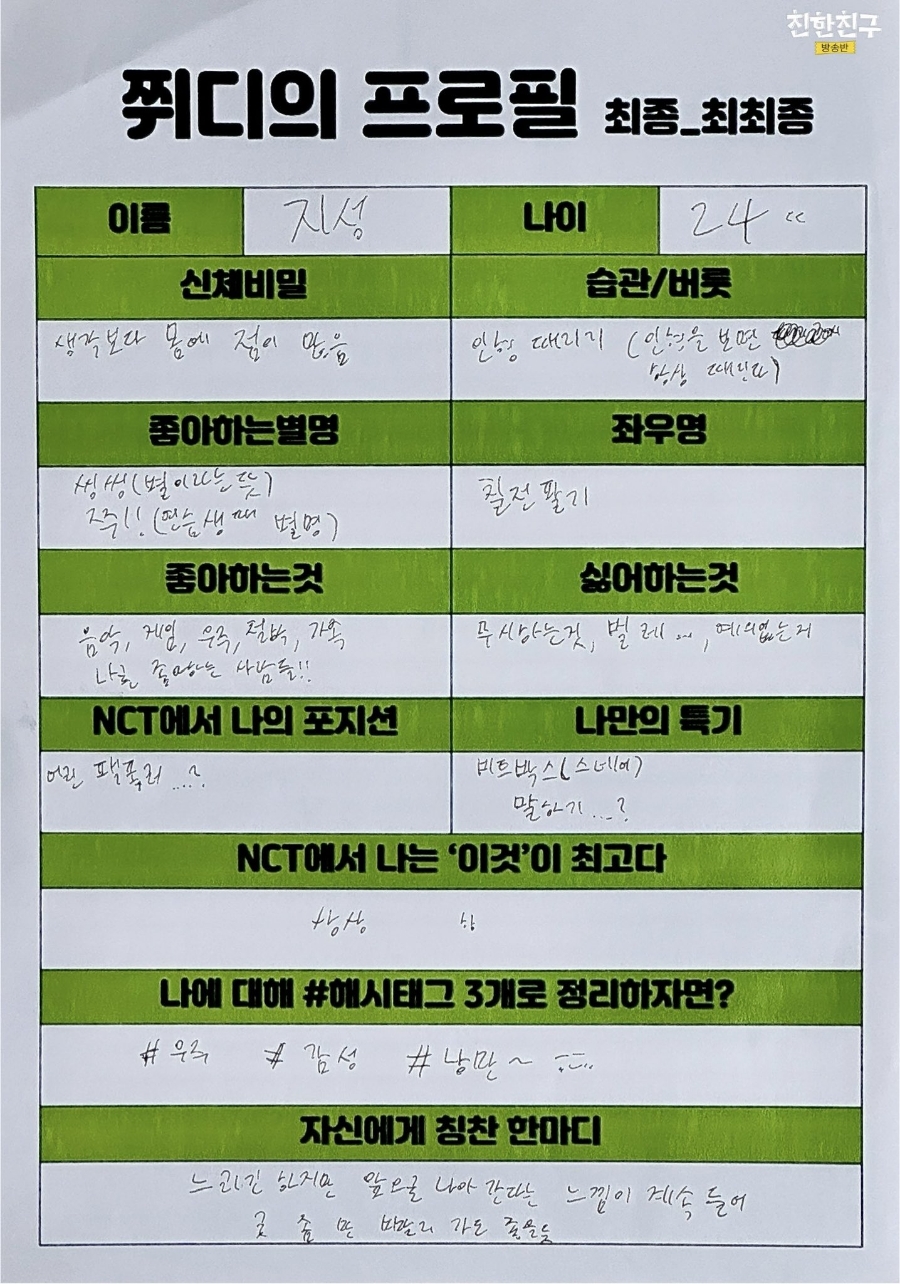 친한친구
방송반
쮜디의 프로필 최종_최최종
이름
지성
나이
24
신체비밀
습관/버릇
생각보다 몸에 점이 많음
인형 때리기 (인형을 보면
항상 때린다)
좋아하는별명
좌우명
씽씽(별이라는 뜻)
쭈!! (연습생 때 별명)
칠전팔기
좋아하는것
싫어하는것
음악, 게임, 우주, 가족
나를 좋아하는 사람들!!
무시하는것, 벌레..., 예의없는거
NCT에서 나의 포지션
나만의 특기
어린
비트박스(스네어)
말하기...?
NCT에서 나는 ‘이것’이 최고다
상상
나에 대해 #해시태그 3개로 정리하자면?
#우주 #감성 #낭만~
자신에게 칭찬 한마디
느리긴 하지만 앞으로 나아 간다는 느낌이 계속 들어
좀 만 빨리 가도 좋을듯